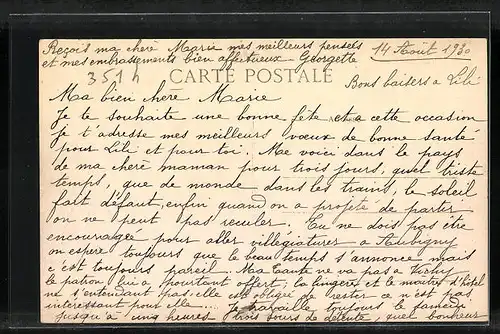 Reçois ma chère Marie mes meilleurs pensées
et mes embrassements bien affectueux Georgette
14 Août 1930
351h
CARTE POSTALE
Bons baisers a Lili
Ma bien chere Marie
Je te souhaite une bonne fête et a cette occasion
je t'adresse mes meilleurs vœux de bonne santé
pour Lili et pour toi. Me voici dans le pays
de ma chere maman pour trois jours, quel triste
temps, que de monde dans les trains, le soleil
fait défaut, enfin quand on a projeté de partir
on ne peut pas reculer. Tu ne dois pas être
encouragée pour aller villégiaturer a Aubigny
on espere toujours que le beau temps s'annonce mais
c'est toujours pareil. Ma Tante ne va pas a Vichy
le patron lui a pourtant offert, la lingere et le maître d'hôtel
ne s'entendant pas elle est obligée de rester ce n'est pas
intéressant pour elle... Je travaille toujours le samedi
jusqu'a cinq heures trois jours de détente, quel bonheur